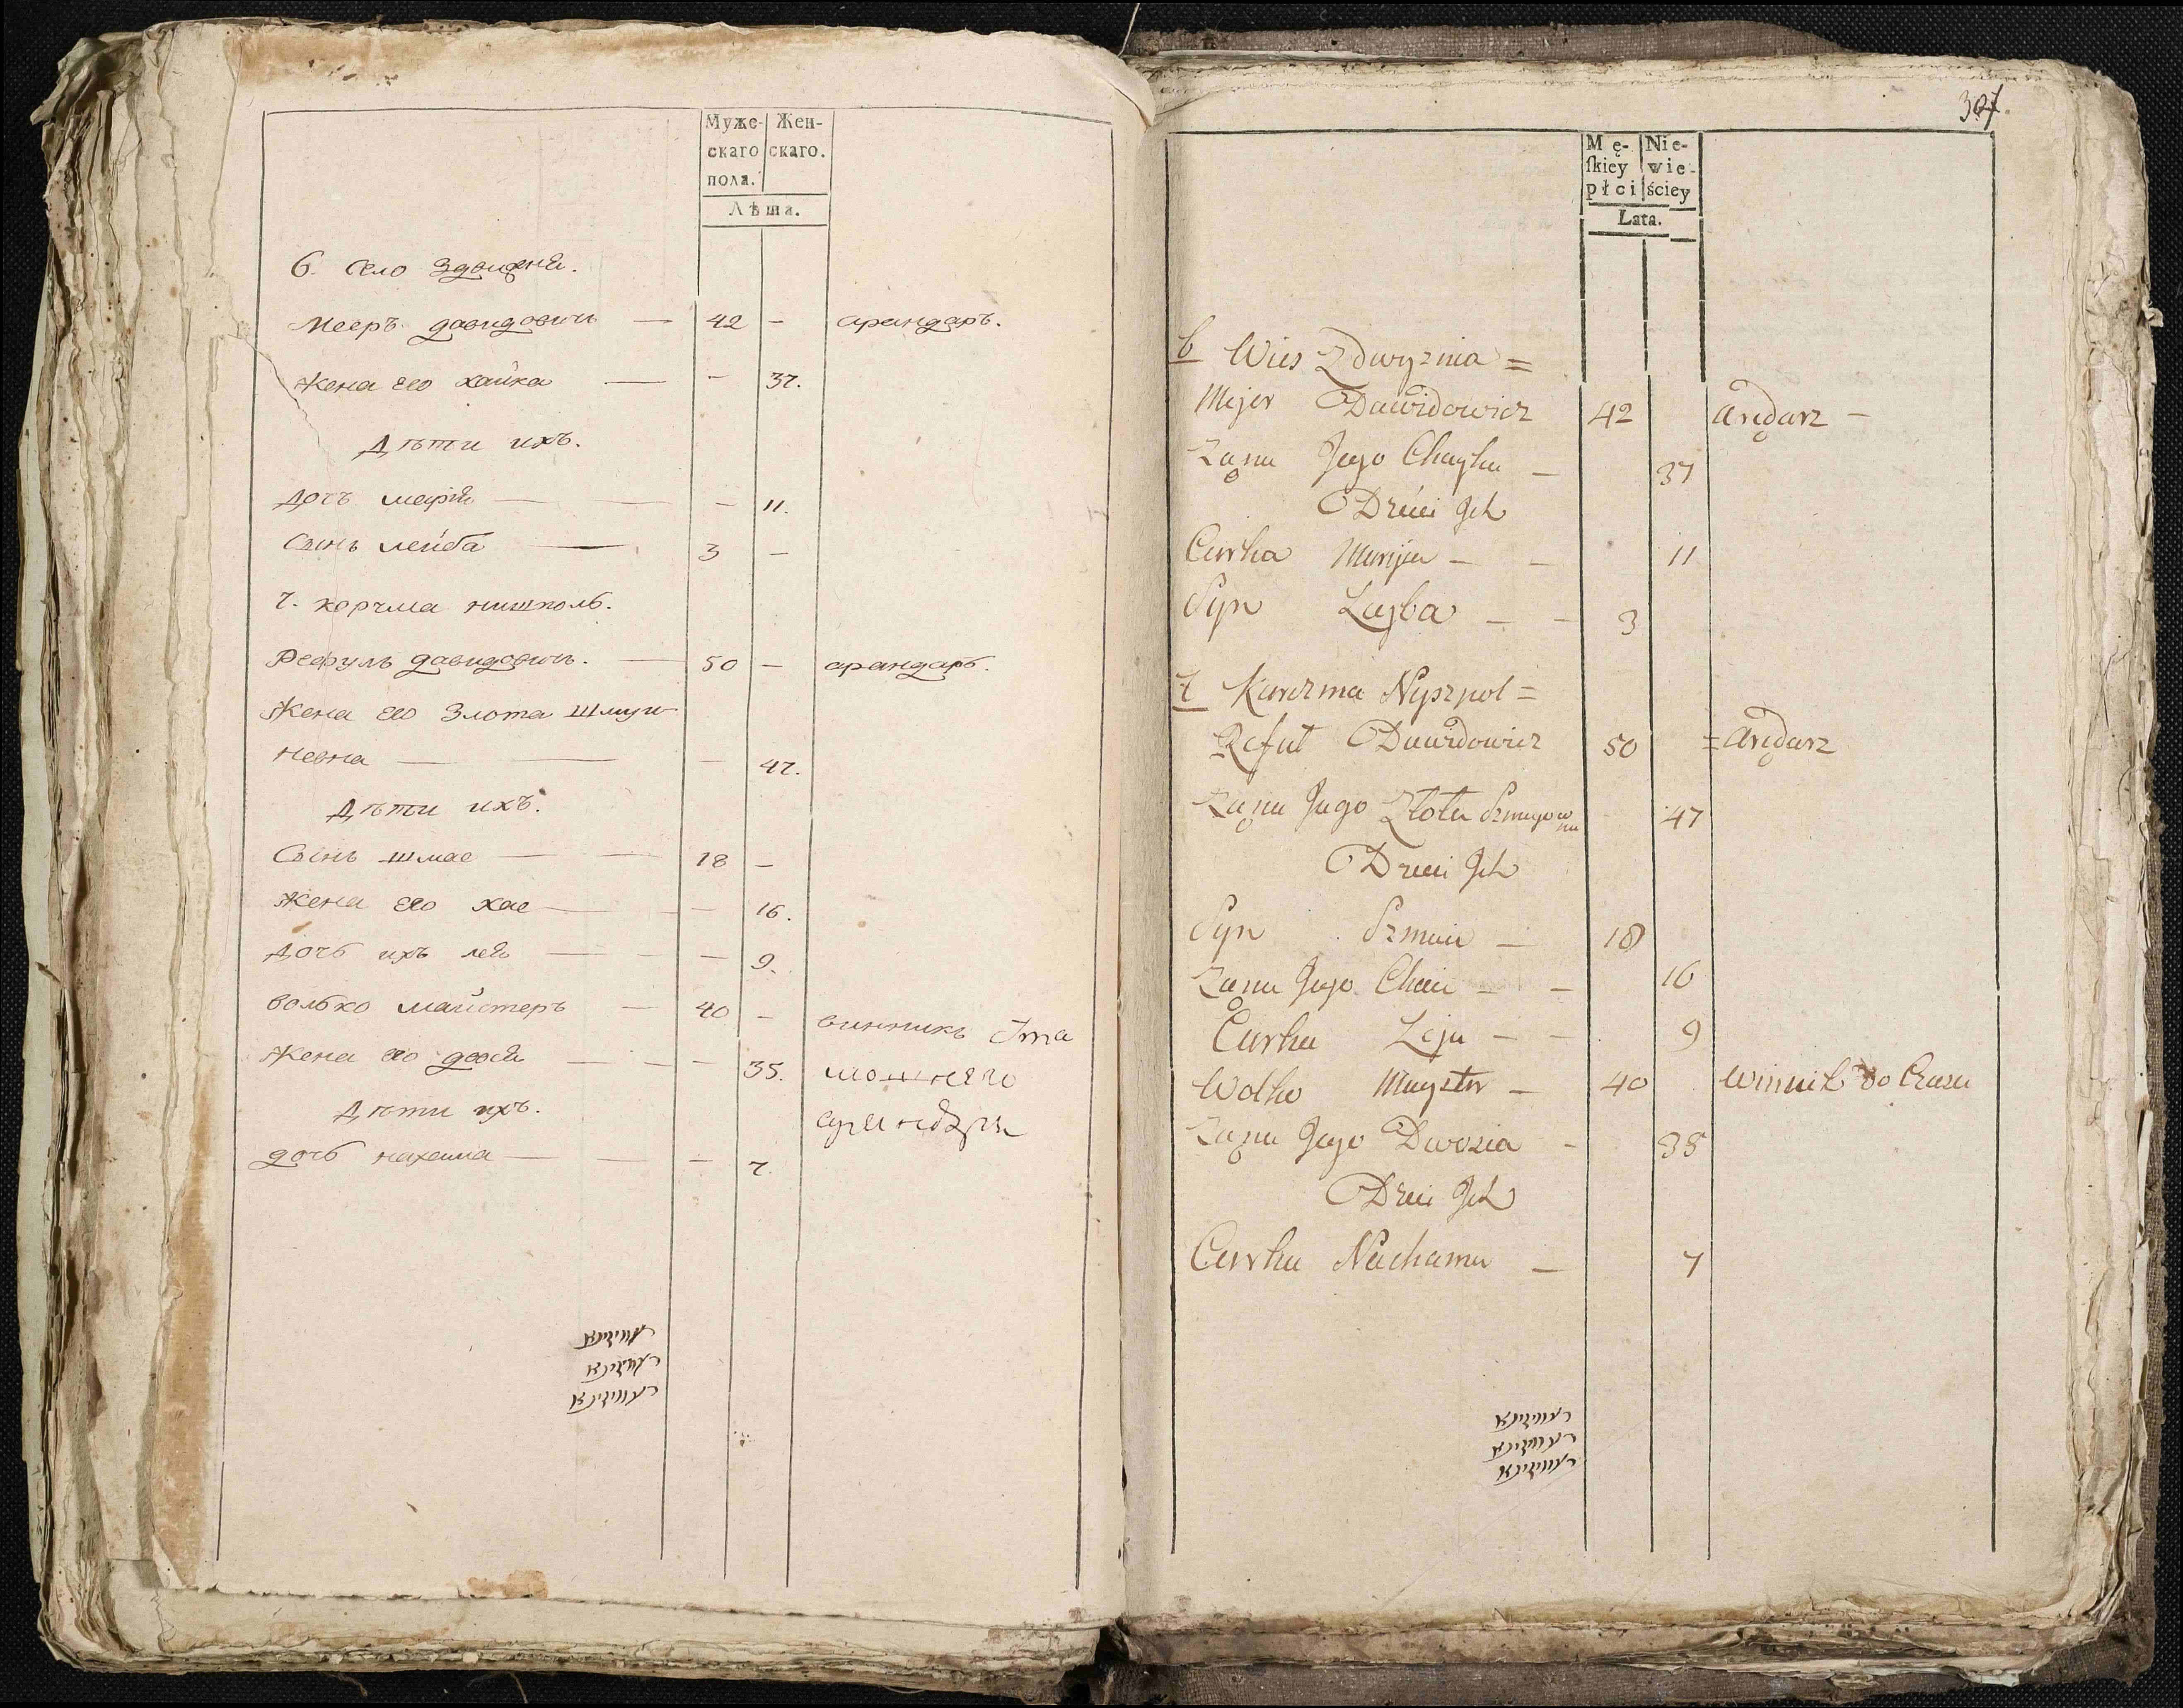 Муже- Жен-
скаго скаго.
пола.
Лѣта.
6. село Здвижня.
Мееръ давидовичъ — 42 — арандаръ.
Жена его хайка — — 37.
Дѣти ихъ.
Дочь марія — — — 11.
Сынъ лейба — 3 —
7. корчма нишполь.
Рефулъ давидовичъ. — 50 — арандаръ.
Жена его Злота Шмуи-
невна — — — 47.
Дѣти ихъ.
Сынъ шмае — — 18 —
Жена его хае — — — 16.
Дочь ихъ лея — — — 9.
волько майстеръ — 40 — винникъ
Жена его двося — — — 35.
Дѣти ихъ.
дочь нахама — — — 7.
307.
Mę- Nie-
ſkiey wie-
płci ściey
Lata.
6 Wies Zdwyznia =
Mejer Dawidowicz 42 Arędarz —
Żona Jego Chayka — 37
Dzieci Ich
Curka Maryja — — 11
Syn Lejba — — 3
7 Karczma Nyszpol =
Reful Dawidowicz 50 = Arędarz
Żona Jego Złota Szmujowna 47
Dzieci Ich
Syn Szmaie — 18
Żona Jego Chaie — — 16
Curka Leja — — 9
Wolko Mayster — 40 Winnik do Czasu
Żona Jego Dwosia — 35
Dzieci Ich
Curka Nachama — 7